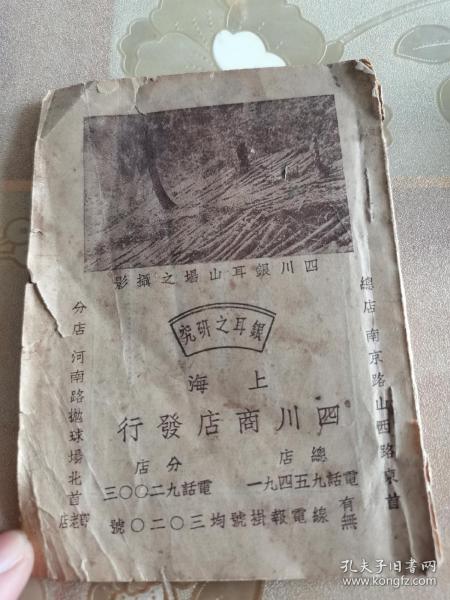 四川銀耳山場之攝影
總店 南京路山西路東首
銀耳之研究
上海
四川商店發行
總店 分店
電話九五四九一 電話九二〇〇三
有無線電報掛號均三〇二〇號
分店 河南路拋球場北首
孔夫子旧书网
www.kongfz.com